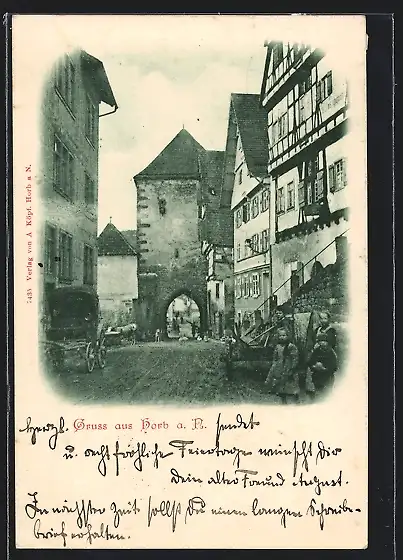 1435 Verlag von A. Köpf, Horb a N.
Herzl. Gruss aus Horb a. N. sendet
u. recht fröhliche Feiertage wünscht Dir
Dein alter Freund August.
In nächster Zeit sollst Du einen langen Schreibe-
brief erhalten.